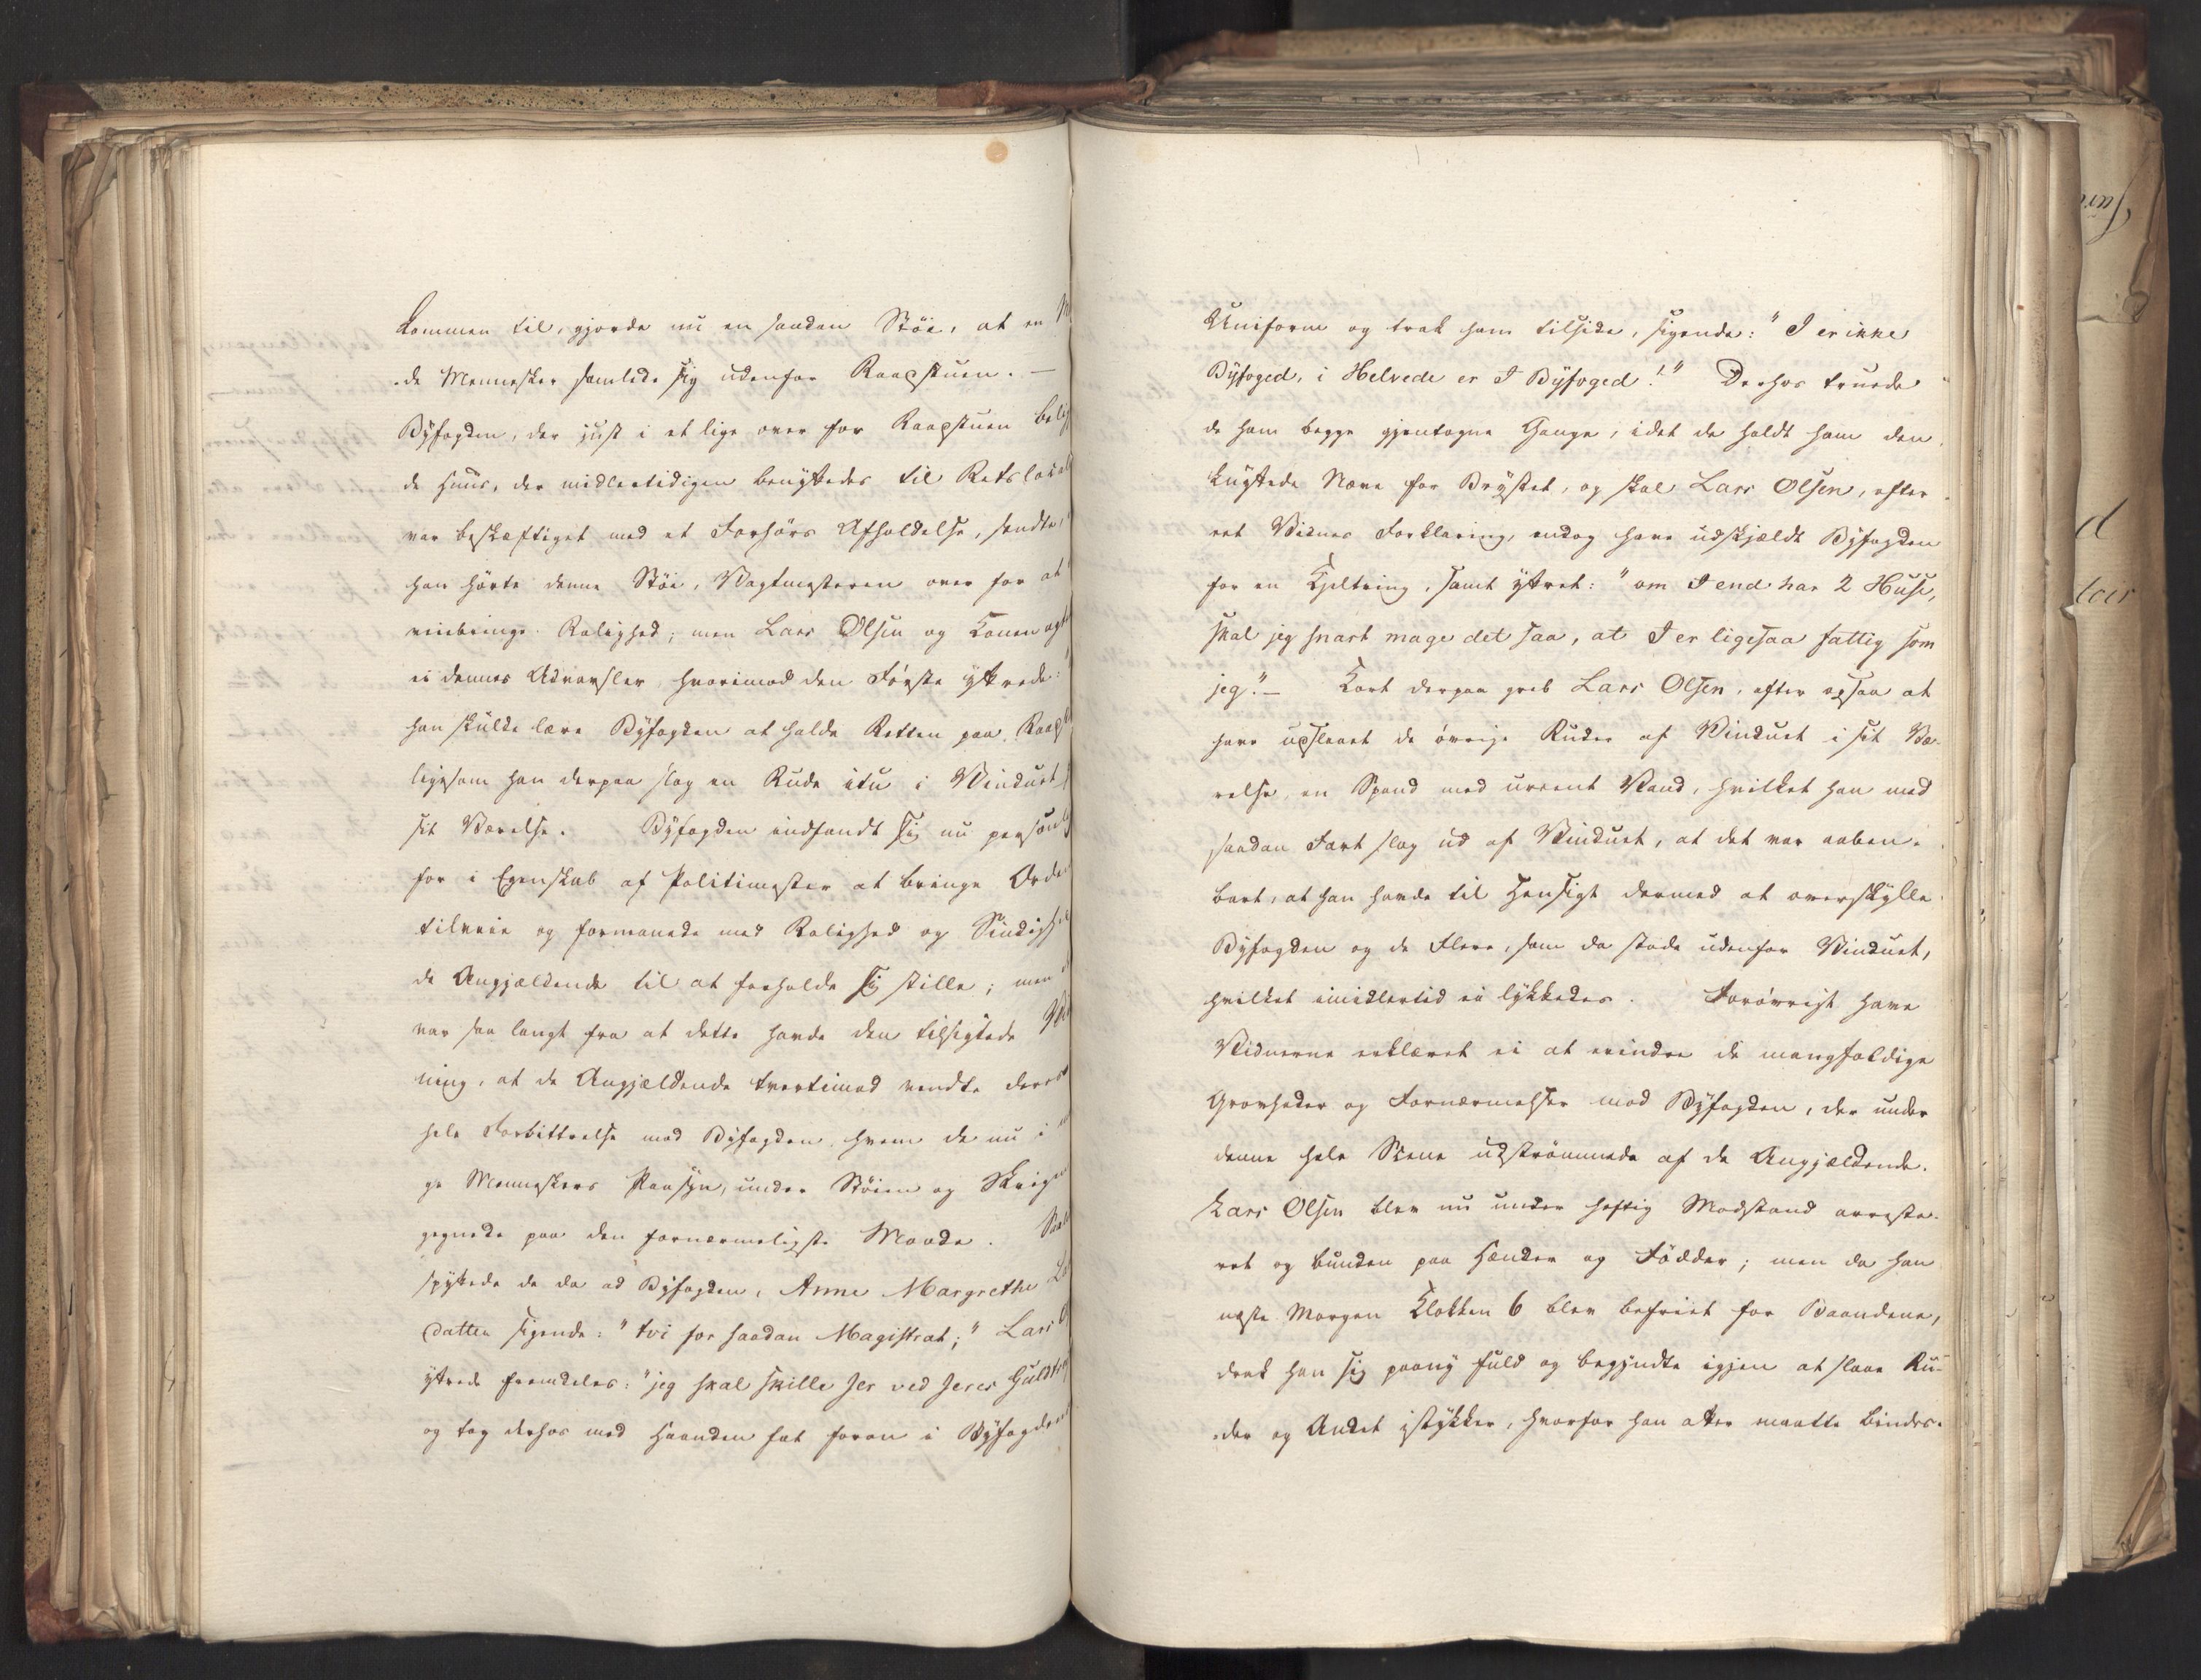 kommen til, gjorde nu en saadan Støi, at en
de Mennesker samlede sig udenfor Raadstuen. —
Byfogden, der just i et lige over for Raadstuen
de Huus, der midlertidigen benyttedes til Retslocal
var beskæftiget med et Forhørs Afholdelse, sendte,
han hørte denne Støi, Vagtmesteren over for at
veiebringe Rolighed; men Lars Olsen og Konen
ei dennes Advarsler, hvorimod den Første yttrede:
han skulde lære Byfogden at holde Retten paa
ligesom han derpaa slog en Rude itu i Vinduet
sit Værelse. Byfogden indfandt sig nu
for i Egenskab af Politimester at bringe
tilveie og formanede med Rolighed og
de Angjældende til at forholde sig stille; men
var saa langt fra at dette havde den tilsigtede
ning, at de Angjældende tvertimod vendte deres
hele Forbittrelse mod Byfogden, hvem de nu i
ge Menneskers Paasyn, under Støien og
gegnede paa den fornærmeligste Maade.
spyttede de da ad Byfogden, Anne Margrethe
datter sigende: "tvi for saadan Magistrat;" Lars
yttrede fremdeles: "jeg skal skille Jer ved Jeres
og tog derhos med Haanden fat foran i
Uniform og trak ham tilside, sigende: "I er ikke
Byfoged, i Helvede er I Byfoged!" Derhos truede
de ham begge gjentagne Gange, idet de holdt ham den
knyttede Næve for Brystet, og skal Lars Olsen, efter
eet Vidnes Forklaring, endog have udskjældt Byfogden
for en Kjeltring, samt yttret: "om I end har 2 Huse,
skal jeg snart mage det saa, at I er ligesaa fattig som
jeg." — Kort derpaa greb Lars Olsen, efter ogsaa at
have udslaaet de øvrige Ruder af Vinduet i sit Væ-
relse, en Spand med ureent Vand, hvilket han med
saadan Fart slog ud af Vinduet, at det var aaben-
bart, at han havde til Hensigt dermed at overskylle
Byfogden og de Flere, som da stode udenfor Vinduet,
hvilket imidlertid ei lykkedes. Forøvrigt have
Vidnerne erklæret ei at erindre de mangfoldige
Grovheder og Fornærmelser mod Byfogden, der under
denne hele Scene udstrømmede af de Angjældende.
Lars Olsen blev nu under heftig Modstand arreste-
ret og bunden paa Hænder og Fødder; men da han
næste Morgen Klokken 6 blev befriet for Baandene,
drak han sig paany fuld og begyndte igjen at slaae Ru-
der og Andet istykker, hvorfor han atter maatte bindes.